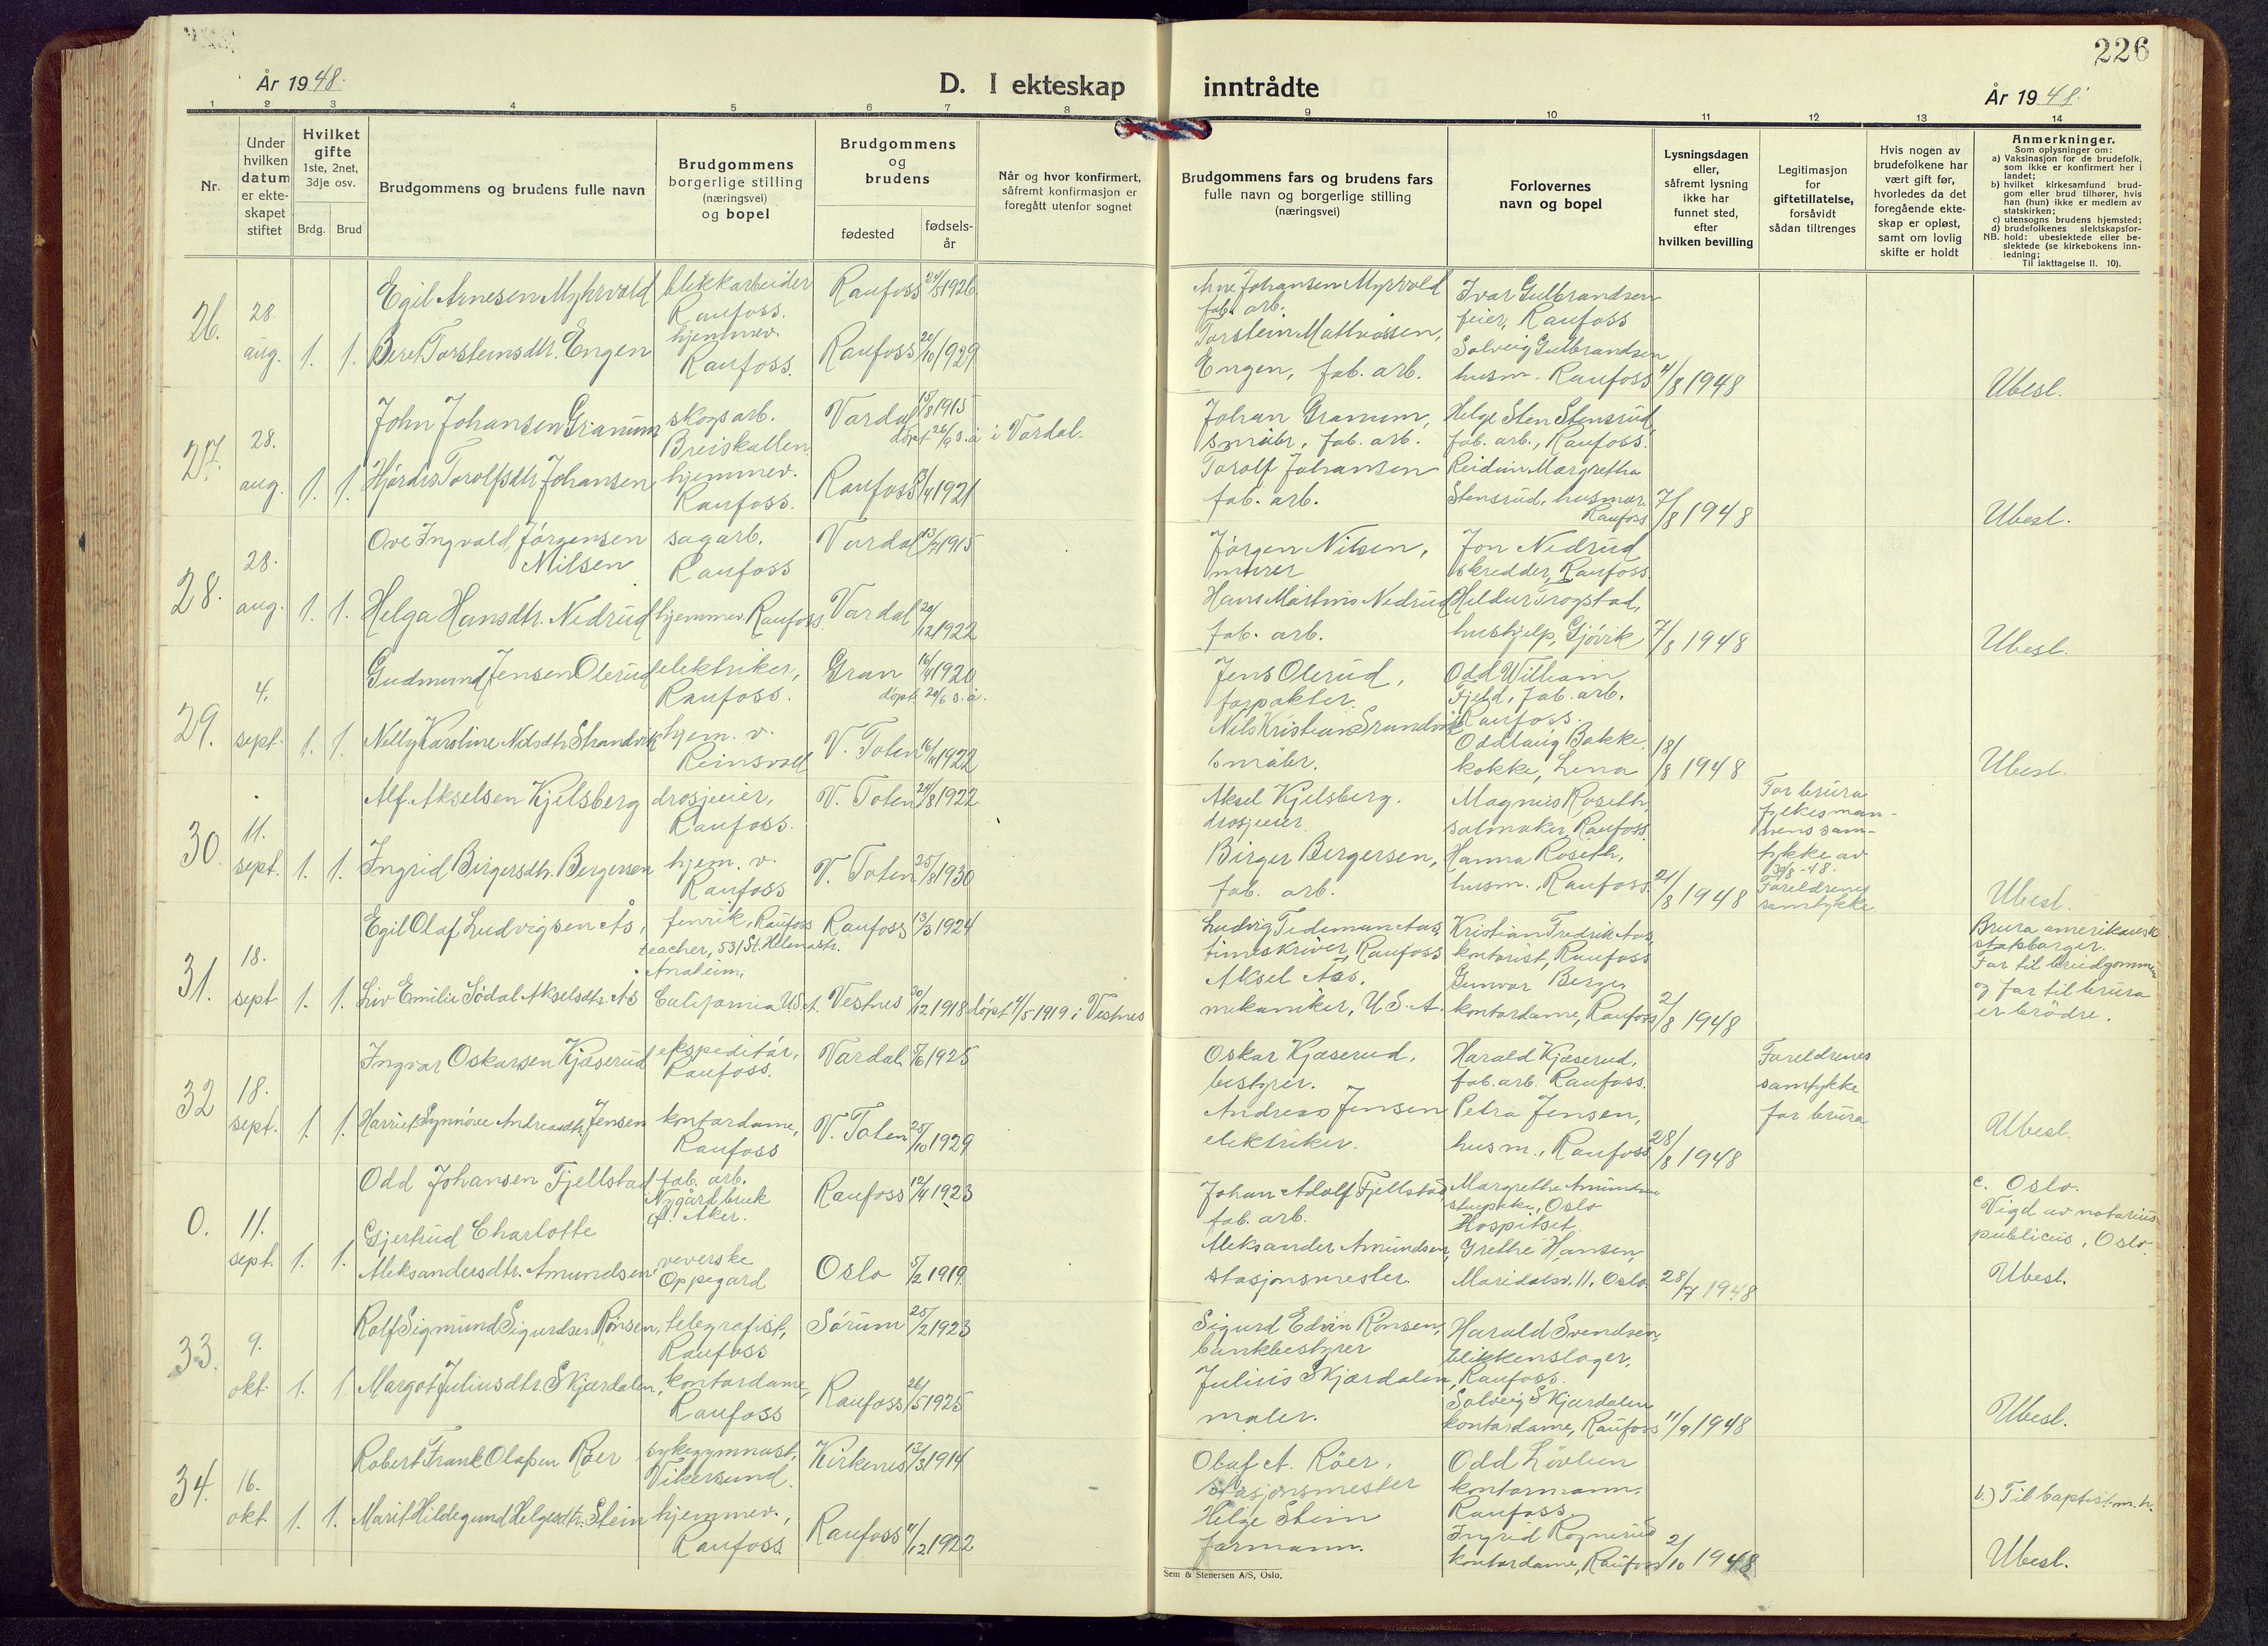 226
År 1948.
D. I ekteskap inntrådte
År 1948.
1 2 3 4 5 6 7 8 9 10 11 12 13 14
Nr.
Under hvilken datum er ekte-skapet stiftet
Hvilket gifte 1ste, 2net, 3dje osv.
Brdg. Brud
Brudgommens og brudens fulle navn
Brudgommens borgerlige stilling (næringsvei) og bopel
Brudgommens og brudens
fødested
fødsels-år
Når og hvor konfirmert, såfremt konfirmasjon er foregått utenfor sognet
Brudgommens fars og brudens fars fulle navn og borgerlige stilling (næringsvei)
Forlovernes navn og bopel
Lysningsdagen eller, såfremt lysning ikke har funnet sted, efter hvilken bevilling
Legitimasjon for giftetillatelse, forsåvidt sådan tiltrenges
Hvis nogen av brudefolkene har vært gift før, hvorledes da det foregående ekte-skap er opløst, samt om lovlig skifte er holdt
Anmerkninger.
Som oplysninger om:
a) Vaksinasjon for de brudefolk, som ikke er konfirmert her i landet;
b) hvilket kirkesamfund brud-gom eller brud tilhører, hvis han (hun) ikke er medlem av statskirken;
c) utensogns brudens hjemsted;
d) brudefolkenes slektskapsfor-hold: ubeslektede eller be-slektede (se kirkebokens inn-ledning;
NB.
Til iakttagelse II. 10).
26. 28. aug. 1. 1.
Egil Arnesen Myhrvold blekkarbeider Raufoss. Raufoss 24/5 1926
Beret Torsteinsdtr. Engen hjemmev. Raufoss. Raufoss 20/10 1929
Arne Johansen Myrvold fab. arb.
Torstein Mathiassen, Engen, fab. arb.
Ivar Gulbrandsen feier, Raufoss
Solveig Gulbrandsen husm. Raufoss
4/8 1948
Ubesl.
27. 28. aug. 1. 1.
John Johansen Granum skogsarb. Breiskallen Vardal 15/8 1915 døpt 26/9 s.å. i Vardal.
Hjördis Torolfsdtr. Johansen hjemmev. Raufoss. Raufoss 1/4 1921
Johan Granum, småbr. fab. arb.
Torolf Johansen fab. arb.
Helge Sten Stensrud, fab. arb., Raufoss.
Reidun Margretha Stensrud, husmor. Raufoss
7/8 1948
Ubesl.
28. 28. aug. 1. 1.
Ove Ingvald Jørgensen Nilsen sagarb. Raufoss Vardal 13/7 1915
Helga Hansdtr. Nedrud hjemmev. Raufoss Vardal 20/12 1922
Jørgen Nilsen, murer
Hans Martins Nedrud fab. arb.
Jon Nedrud skredder, Raufoss.
Heldur Trogstad, hushjelp, Gjøvik
7/8 1948
Ubesl.
29. 4. sept. 1. 1.
Gudmund Jensen Olerud elektriker, Raufoss. Gran 16/4 1920 døpt 20/6 s.å.
Nelly Karoline Nilsdtr. Strandvik hjem. v. Reinsvoll V. Toten 1922
Jens Olerud, forpakter.
Nils Kristian Strandvik småbr.
Odd William Fjeld, fab. arb. Raufoss.
Oddlaug Bakke, kokke, Lena
18/8 1948
Ubesl.
30. 11. sept. 1. 1.
Alf Akselsen Kjelsberg drosjeeier, Raufoss. V. Toten 24/8 1922
Ingrid Birgersdtr. Bergersen hjem. v. Raufoss V. Toten 25/8 1930
Aksel Kjelsberg. drosjeeier
Birger Bergersen, fab. arb.
Magnus Roseth, salmaker, Raufoss.
Hanna Roseth, husm., Raufoss.
21/8 1948
For brura fylkesman-nens sam-tykke av 30/8-48. Foreldrenes samtykke
Ubesl.
31. 18. sept 1. 1.
Egil Olaf Ludvigsen Ås, fenrik, Raufoss Raufoss 13/3 1924
Liv Emilie Södal Akselsdtr. Ås teacher, 531 St. Helenastr. Anaheim, California U.S.A. Vestnes 30/12 1918 døpt 4/5 1919 i Vestnes
Ludvig Tidemann Aas, timeskriver, Raufoss
Aksel Aas. mekaniker, U.S.A.
Kristian Fredrik Aas, kontorist, Raufoss
Gunvor Berge, kontordame, Raufoss
2/8 1948
Brura amerikansk statsborger. Far til brudgommen og far til brura er brödre.
32 18. sept. 1. 1.
Ingvar Oskarsen Kjæserud ekspeditör, Raufoss. Vardal 5/6 1925
Harriet Synnöve Andreasdtr. Jensen kontordame, Raufoss V. Toten 25/10 1929
Oskar Kjæserud, bestyrer.
Andreas Jensen elektriker.
Harald Kjæserud, fab. arb. Raufoss.
Petra Jensen, husm., Raufoss
28/8 1948
Foreldrenes samtykke for brura
Ubesl.
0. 11. sept. 1. 1.
Odd Johansen Fjellstad fab. arb. Nygård bruk Ø. Aker. Raufoss 12/4 1923
Gjertrud Charlotte Aleksandersdtr. Amundsen veverske Oppegård Oslo 5/2 1919
Johan Adolf Fjellstad fab. arb.
Aleksander Amundsen, stasjonsmester.
Margrethe Amundsen Oslo Hospitset.
Grethe Hansen, Maridalsv. 11, Oslo.
28/7 1948
c. Oslo. Vigd av notarius publicus, Oslo.
Ubesl.
33. 9. okt. 1. 1
Rolf Sigmund Sigurdsen Rønsen, telegrafist, Raufoss Sørum 25/2 1923
Margot Juliusdtr. Skjærdalen, kontordame, Raufoss Raufoss 26/5 1925
Sigurd Edvin Rønsen, bankbestyrer
Julius Skjærdalen, maler.
Harald Svendsen, blikkenslager, Raufoss.
Solveig Skjærdalen kontordame, Raufoss
11/9 1948
Ubesl.
34. 16. okt. 1. 1.
Robert Frank Olafsen Röer sykegymnast, Vikersund. Kirkenes 13/3 1914
Marit Hildegund Helgesdtr. Stein hjemmev., Raufoss. Raufoss 4/12 1922
Olaf A. Röer, stasjonsmester
Helge Stein formann.
Odd Lövlien kontormann, Raufoss.
Ingrid Rognerud kontordame, Raufoss
2/10 1948
b.) Til baptist. m. h.
Ubesl.
Sem & Stenersen A/S, Oslo.